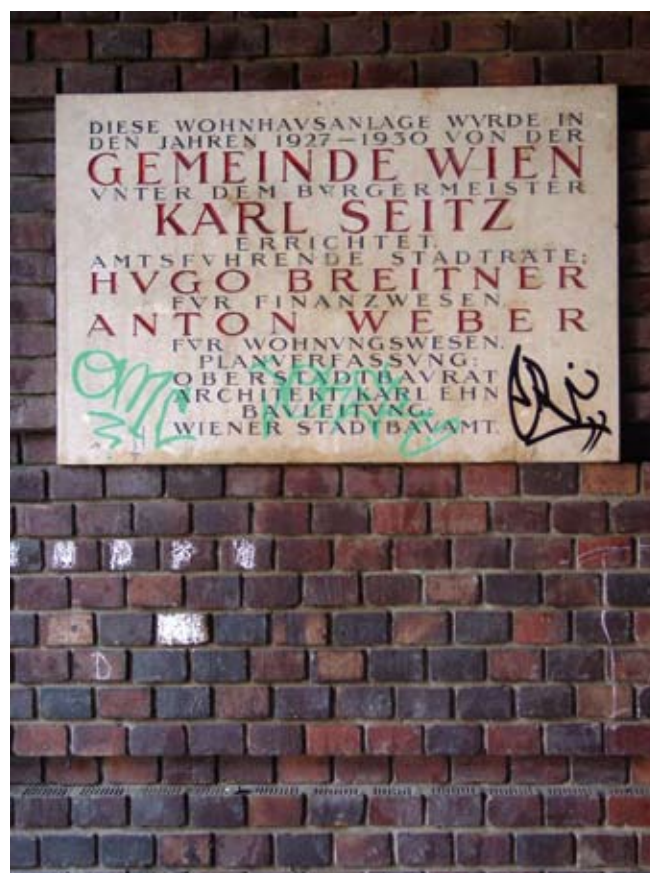 DIESE WOHNHAVSANLAGE WVRDE IN
DEN JAHREN 1927–1930 VON DER
GEMEINDE WIEN
VNTER DEM BVRGERMEISTER
KARL SEITZ
ERRICHTET.
AMTSFVHRENDE STADTRÄTE:
HVGO BREITNER
FVR FINANZWESEN
ANTON WEBER
FVR WOHNVNGSWESEN.
PLANVERFASSVNG:
OBERSTADTBAVRAT
ARCHITEKT KARL EHN
BAVLEITVNG:
WIENER STADTBAVAMT.